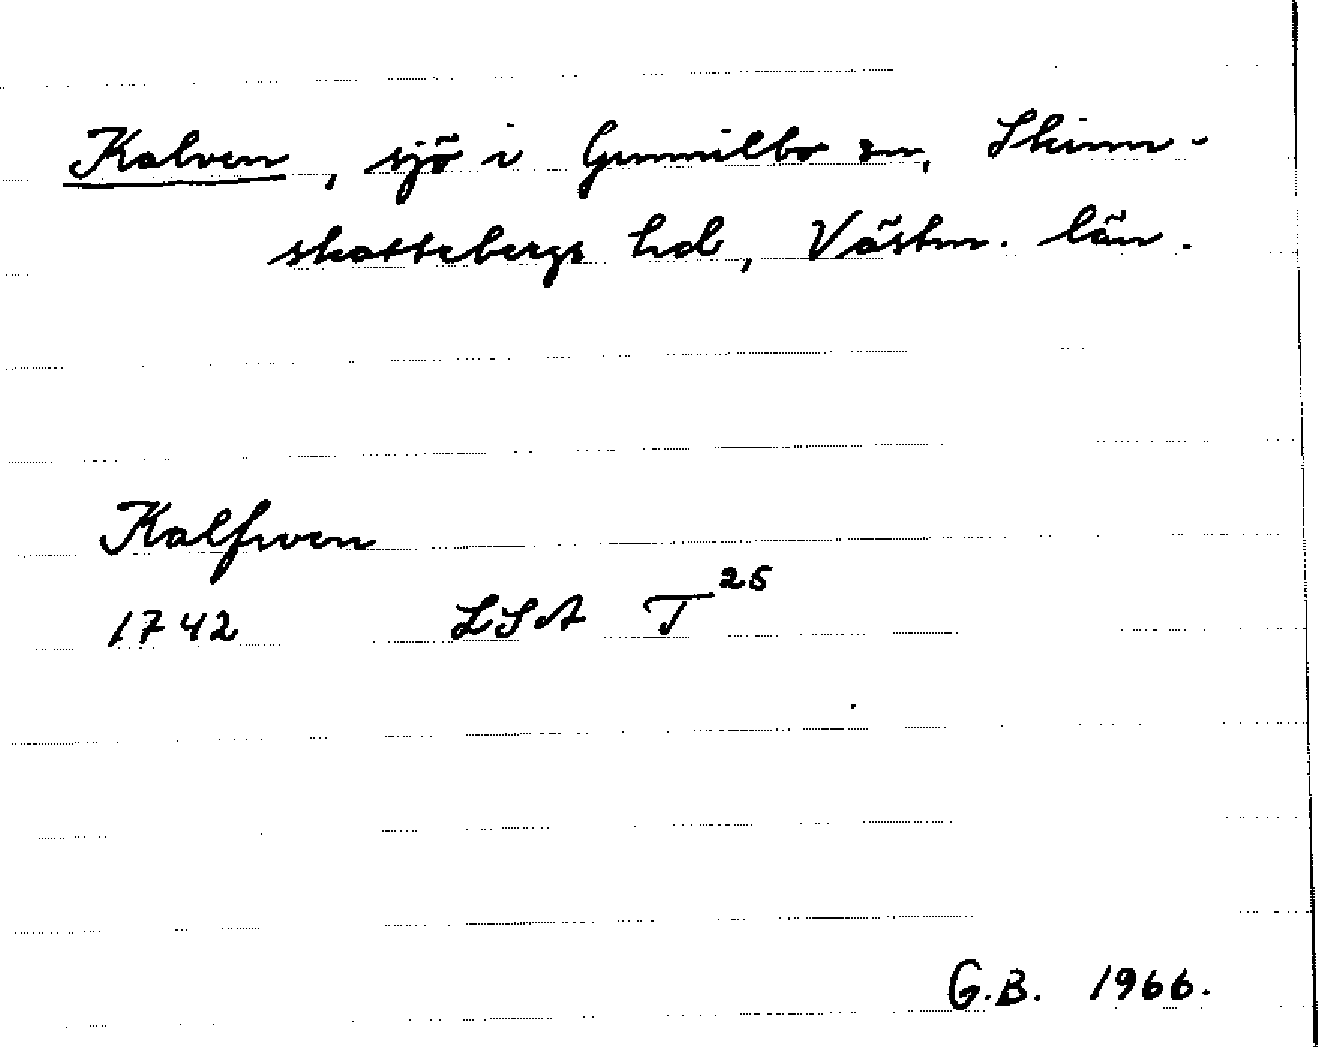 Kalven, sjö i Gunnilbo sn, Skinn-
skattebergs hd, Västm. län.
Kalfwen
1742 LSA T25
G.B. 1966.